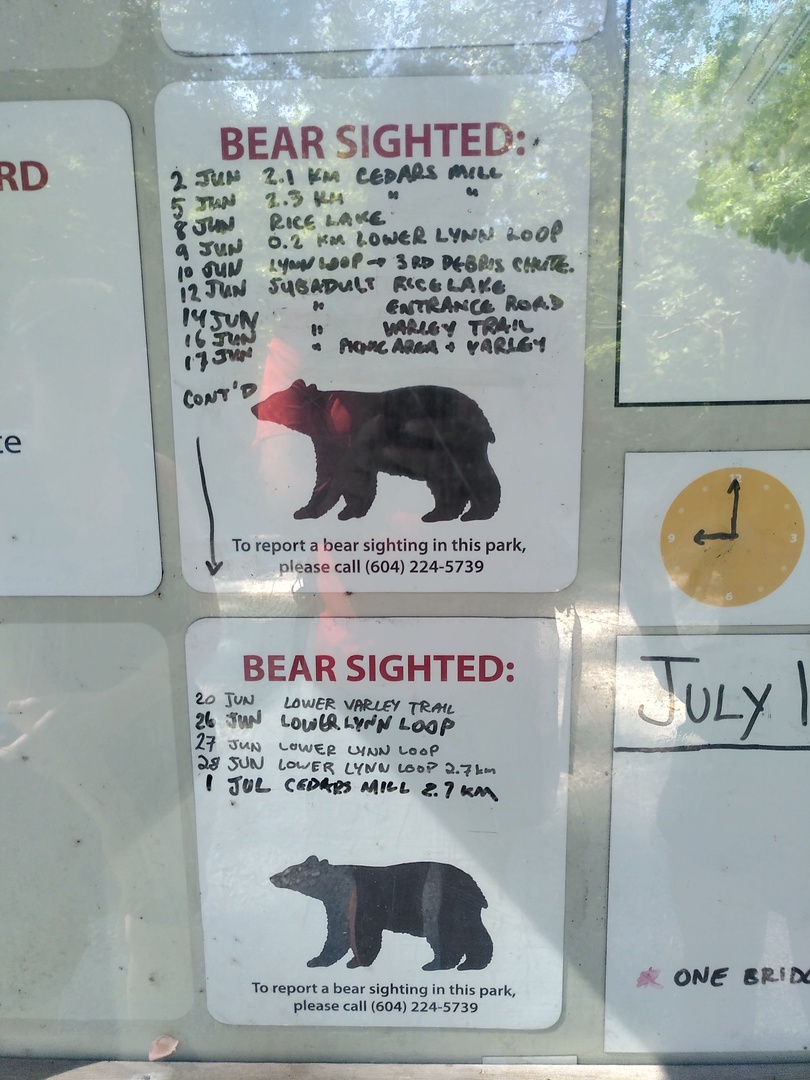 RD
te
BEAR SIGHTED:
2 JUN 2.1 KM CEDARS MILL
5 JUN 2.3 KM " "
8 JUN RICE LAKE
9 JUN 0.2 KM LOWER LYNN LOOP
10 JUN LYNN LOOP → 3RD DEBRIS CHUTE.
12 JUN SUBADULT RICE LAKE
14 JUN " ENTRANCE ROAD
16 JUN " VARLEY TRAIL
17 JUN " PICNIC AREA + VARLEY
CONT'D
To report a bear sighting in this park,
please call (604) 224-5739
BEAR SIGHTED:
20 JUN LOWER VARLEY TRAIL
26 JUN LOWER LYNN LOOP
27 JUN LOWER LYNN LOOP
28 JUN LOWER LYNN LOOP 2.7 km
1 JUL CEDARS MILL 2.7 KM
To report a bear sighting in this park,
please call (604) 224-5739
12
9 3
6
JULY 1
ONE BRIDG